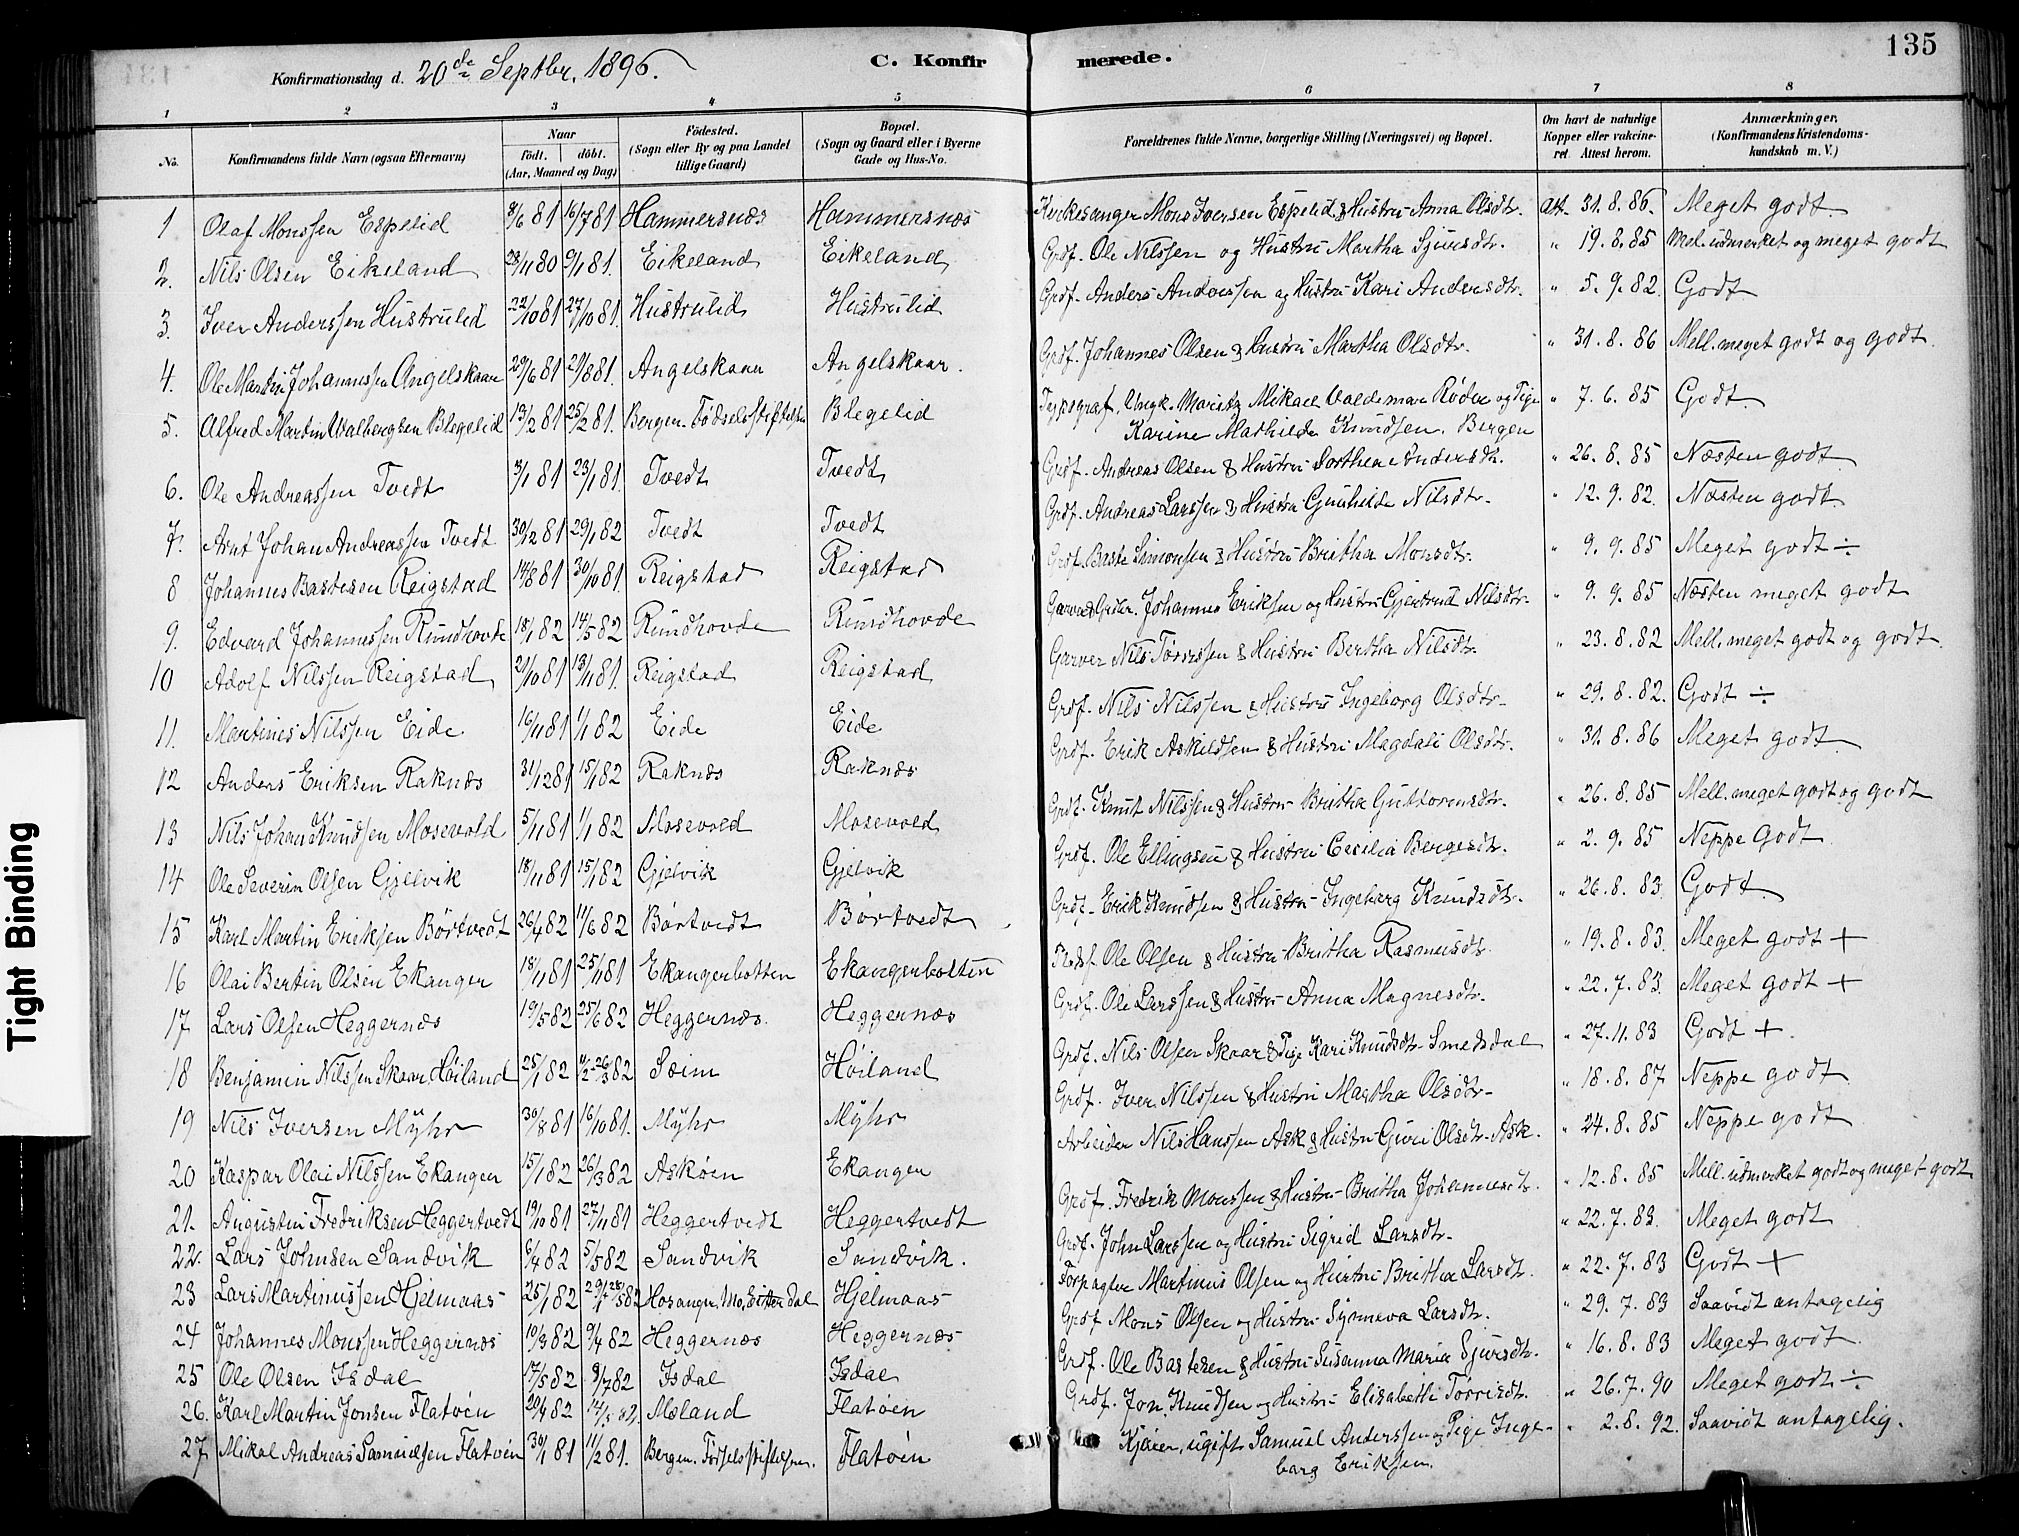 135
Konfirmationsdag d. 20de Septbr. 1896.
C. Konfirmerede.
1 2 3 4 5 6 7 8
No. Konfirmandens fulde Navn (ogsaa Efternavn) Naar födt. döbt. (Aar, Maaned og Dag) Födested. (Sogn eller By og paa Landet tillige Gaard) Bopæl. (Sogn og Gaard eller i Byerne Gade og Hus-No. Forældrenes fulde Navne, borgerlige Stilling (Næringsvei) og Bopæl. Om havt de naturlige Kopper eller vakcineret. Attest herom. Anmærkninger. (Konfirmandens Kristendomskundskab m. V.)
1 Olaf Monssen Espelid 8/6 81 16/7 81 Hammersnæs Hammersnæs Kirkesanger Mons Iversen Espelid & Hustru Anna Olsdtr. Att. 31.8.86. Meget godt.
2. Nils Olsen Eikeland 23/11 80 9/1 81. Eikeland Eikeland Grdf. Ole Nilssen og Hustru Martha Sjursdtr. " 19.8.85 Mel. udmerket og meget godt
3. Iver Anderssen Hustrulid 22/10 81 27/10 81. Hustrulid Hustrulid Grdf. Anders Anderssen og Hustru Kari Andersdtr. " 5.9.82. Godt
4. Ole Martin Johannessen Angelskaar 29/6 81 21/8 81. Angelskaar Angelskaar. Grdf. Johannes Olsen & Hustru Martha Olsdtr. " 31.8.86 Mell. meget godt og godt.
5. Alfred Martin Walbergsen Blegelid 13/2 81 25/2 81. Bergen. Födselsstiftelsen Blegelid Typograf, Ungk. Moritz Mikael Valdemar Röder og Pige " 7.6.85 Godt.
Karine Mathilde Knudsen. Bergen
6. Ole Andreassen Tvedt 3/1 81 23/1 81. Tvedt Tvedt Grdf. Andreas Olsen & Hustru Dorthea Andersdtr. " 26.8.85 Næsten godt
7. Arnt Johan Andreassen Tvedt 30/12 81 29/1 82 Tvedt Tvedt Grdf. Andreas Larssen & Hustru Gunhilde Nilsdtr. " 12.9.82. Næsten godt.
8 Johannes Bastesen Reigstad 14/8 81 30/10 81. Reigstad Reigstad Grdf. Baste Simonsen & Hustru Britha Monsdtr. " 9.9.85 Meget godt ÷
9. Edvard Johannessen Rundhovde 18/1 82 14/5 82 Rundhovde Rundhovde Johannes Eriksen og Hustru Gjertrud Nilsdtr. " 9.9.85 Næsten meget godt
10 Adolf Nilssen Reigstad 21/10 81 13/11 81. Reigstad Reigstad Garver Nils Tørrissen & Hustru Bertha Nilsdtr. " 23.8.82 Mell. meget godt og godt.
11. Martinus Nilssen Eide 16/11 81 1/1 82 Eide Eide Grdf. Nils Nilssen & Hustru Ingeborg Olsdtr. " 29.8.82. Godt ÷
12 Anders Eriksen Raknæs 31/12 81 15/1 82 Raknæs Raknæs Grdf. Erik Askildsen & Hustru Magdali Olsdtr. " 31.8.86 Meget godt
13 Nils Johan Knudsen Mosevold 5/11 81 1/1 82 Mosevold Mosevold Grdf. Knut Nilssen & Hustru Britha Guttormsdtr. " 26.8.85 Mell. meget godt og godt
14 Ole Severin Olsen Gjelvik 18/11 81 15/1 82 Gjelvik Gjelvik Grdf. Ole Ellingsen & Hustru Cecilia Bergesdtr. " 2.9.85 Neppe Godt
15 Karl Martin Eriksen Börtvedt 26/4 82 11/6 82 Börtvedt Börtvedt Grdf. Erik Knudsen & Hustru Ingeborg Knudsdtr. " 26.8.83. Godt.
16 Olai Bertin Olsen Ekanger 18/11 81 25/11 81 Ekangerbotten Ekangerbotten Ole Olsen & Hustru Britha Rasmusdtr. " 19.8.83. Meget godt +
17 Lars Olsen Heggernæs 19/5 82 25/6 82 Heggernæs. Heggernæs Grdf. Ole Larssen & Hustru Anna Magnesdtr. " 22.7.83. Meget godt +
18 Benjamin Nilssen Skaar Höiland 25/1 82 4/2-26/3 82 Sæim Höiland Grdf. Nils Olsen Skaar & Pige Kari Knudsdtr. Smedsdal " 27.11.83 Godt +
19 Nils Iversen Mÿhr 30/8 81 16/10 81. Mÿhr Mÿhr Grdf. Iver Nilssen & Hustru Martha Olsdtr. " 18.8.87 Neppe godt
20 Kaspar Olai Nilssen Ekanger 15/1 82 26/3 82 Askøen Ekanger Arbeider Nils Hanssen Ask & Hustru Guri Olsdtr. Ask. " 24.8.85 Neppe godt
21. Augustin Fredriksen Heggertvedt 19/10 81 27/11 81 Heggertvedt Heggertvedt Grdf. Fredrik Monssen & Hustru Britha Johannesdtr. " 12.8.85 Mell. udmerket godt og meget godt
22. Lars Johnsen Sandvik 6/4 82 5/5 82 Sandvik Sandvik. Grdf. John Larssen og Hustru Sigrid Larsdtr. " 22.7.83. Meget godt
23 Lars Martinussen Hjelmaas 25/1 82 29/1-28/5 82 Hosanger, Mo, Eitterdal Hjelmaas Forpagter Martinus Olsen og Hustru Britha Larsdtr. " 22.7.83 Godt +
24 Johannes Monssen Heggernæs 19/3 82 9/4 82 Heggernæs Heggernæs Grdf Mons Olsen og Hustru Synneva Larsdtr. " 29.7.83 Saavidt antagelig
25 Ole Olsen Isdal 17/5 82 9/7 82 Isdal Isdal Grdf. Ole Bastesen & Hustru Susanna Maria Sjursdtr. " 16.8.83 Meget godt.
26. Karl Martin Jonsen Flatöen 20/4 82 14/5 82. Mæland Flatöen Grdf. Jon. Knudsen og Hustru Elisabeth Tørrisdtr. " 26.7.90 Meget godt ÷
27 Mikal Andreas Samuelsen Flatöen 30/1 81 11/2 81. Bergen. Födselsstiftelsen. Flatöen Kjøier, ugift Samuel Anderssen og Pige Inge- " 2.8.92. Saavidt antagelig.
borg Eriksen.
Tight Binding